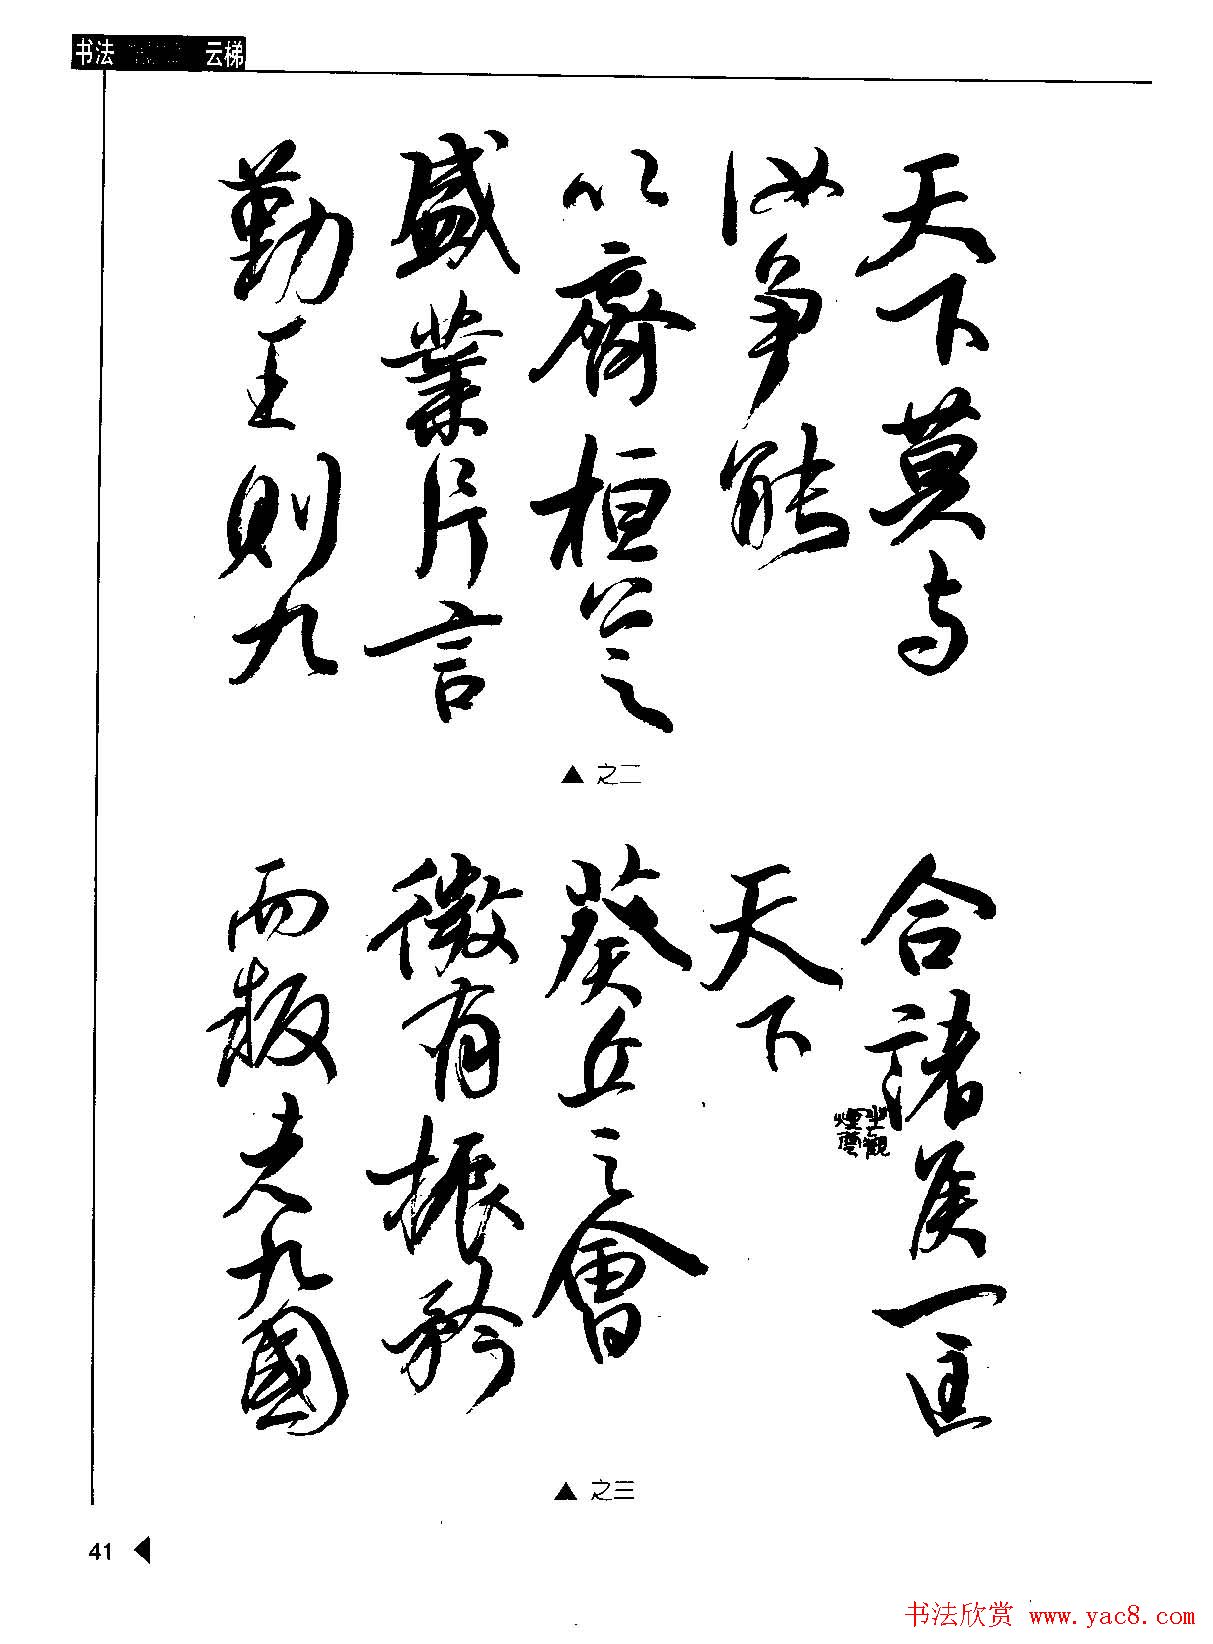 书法 云梯
天下莫与
汝爭能
以齊桓公之
盛業片言
勤王則九
▲ 之二
合諸侯一匡
天下
葵丘之會
微有振矜
而叛者九國
坐觀
煙雲
▲ 之三
41
书法欣赏 www.yac8.com